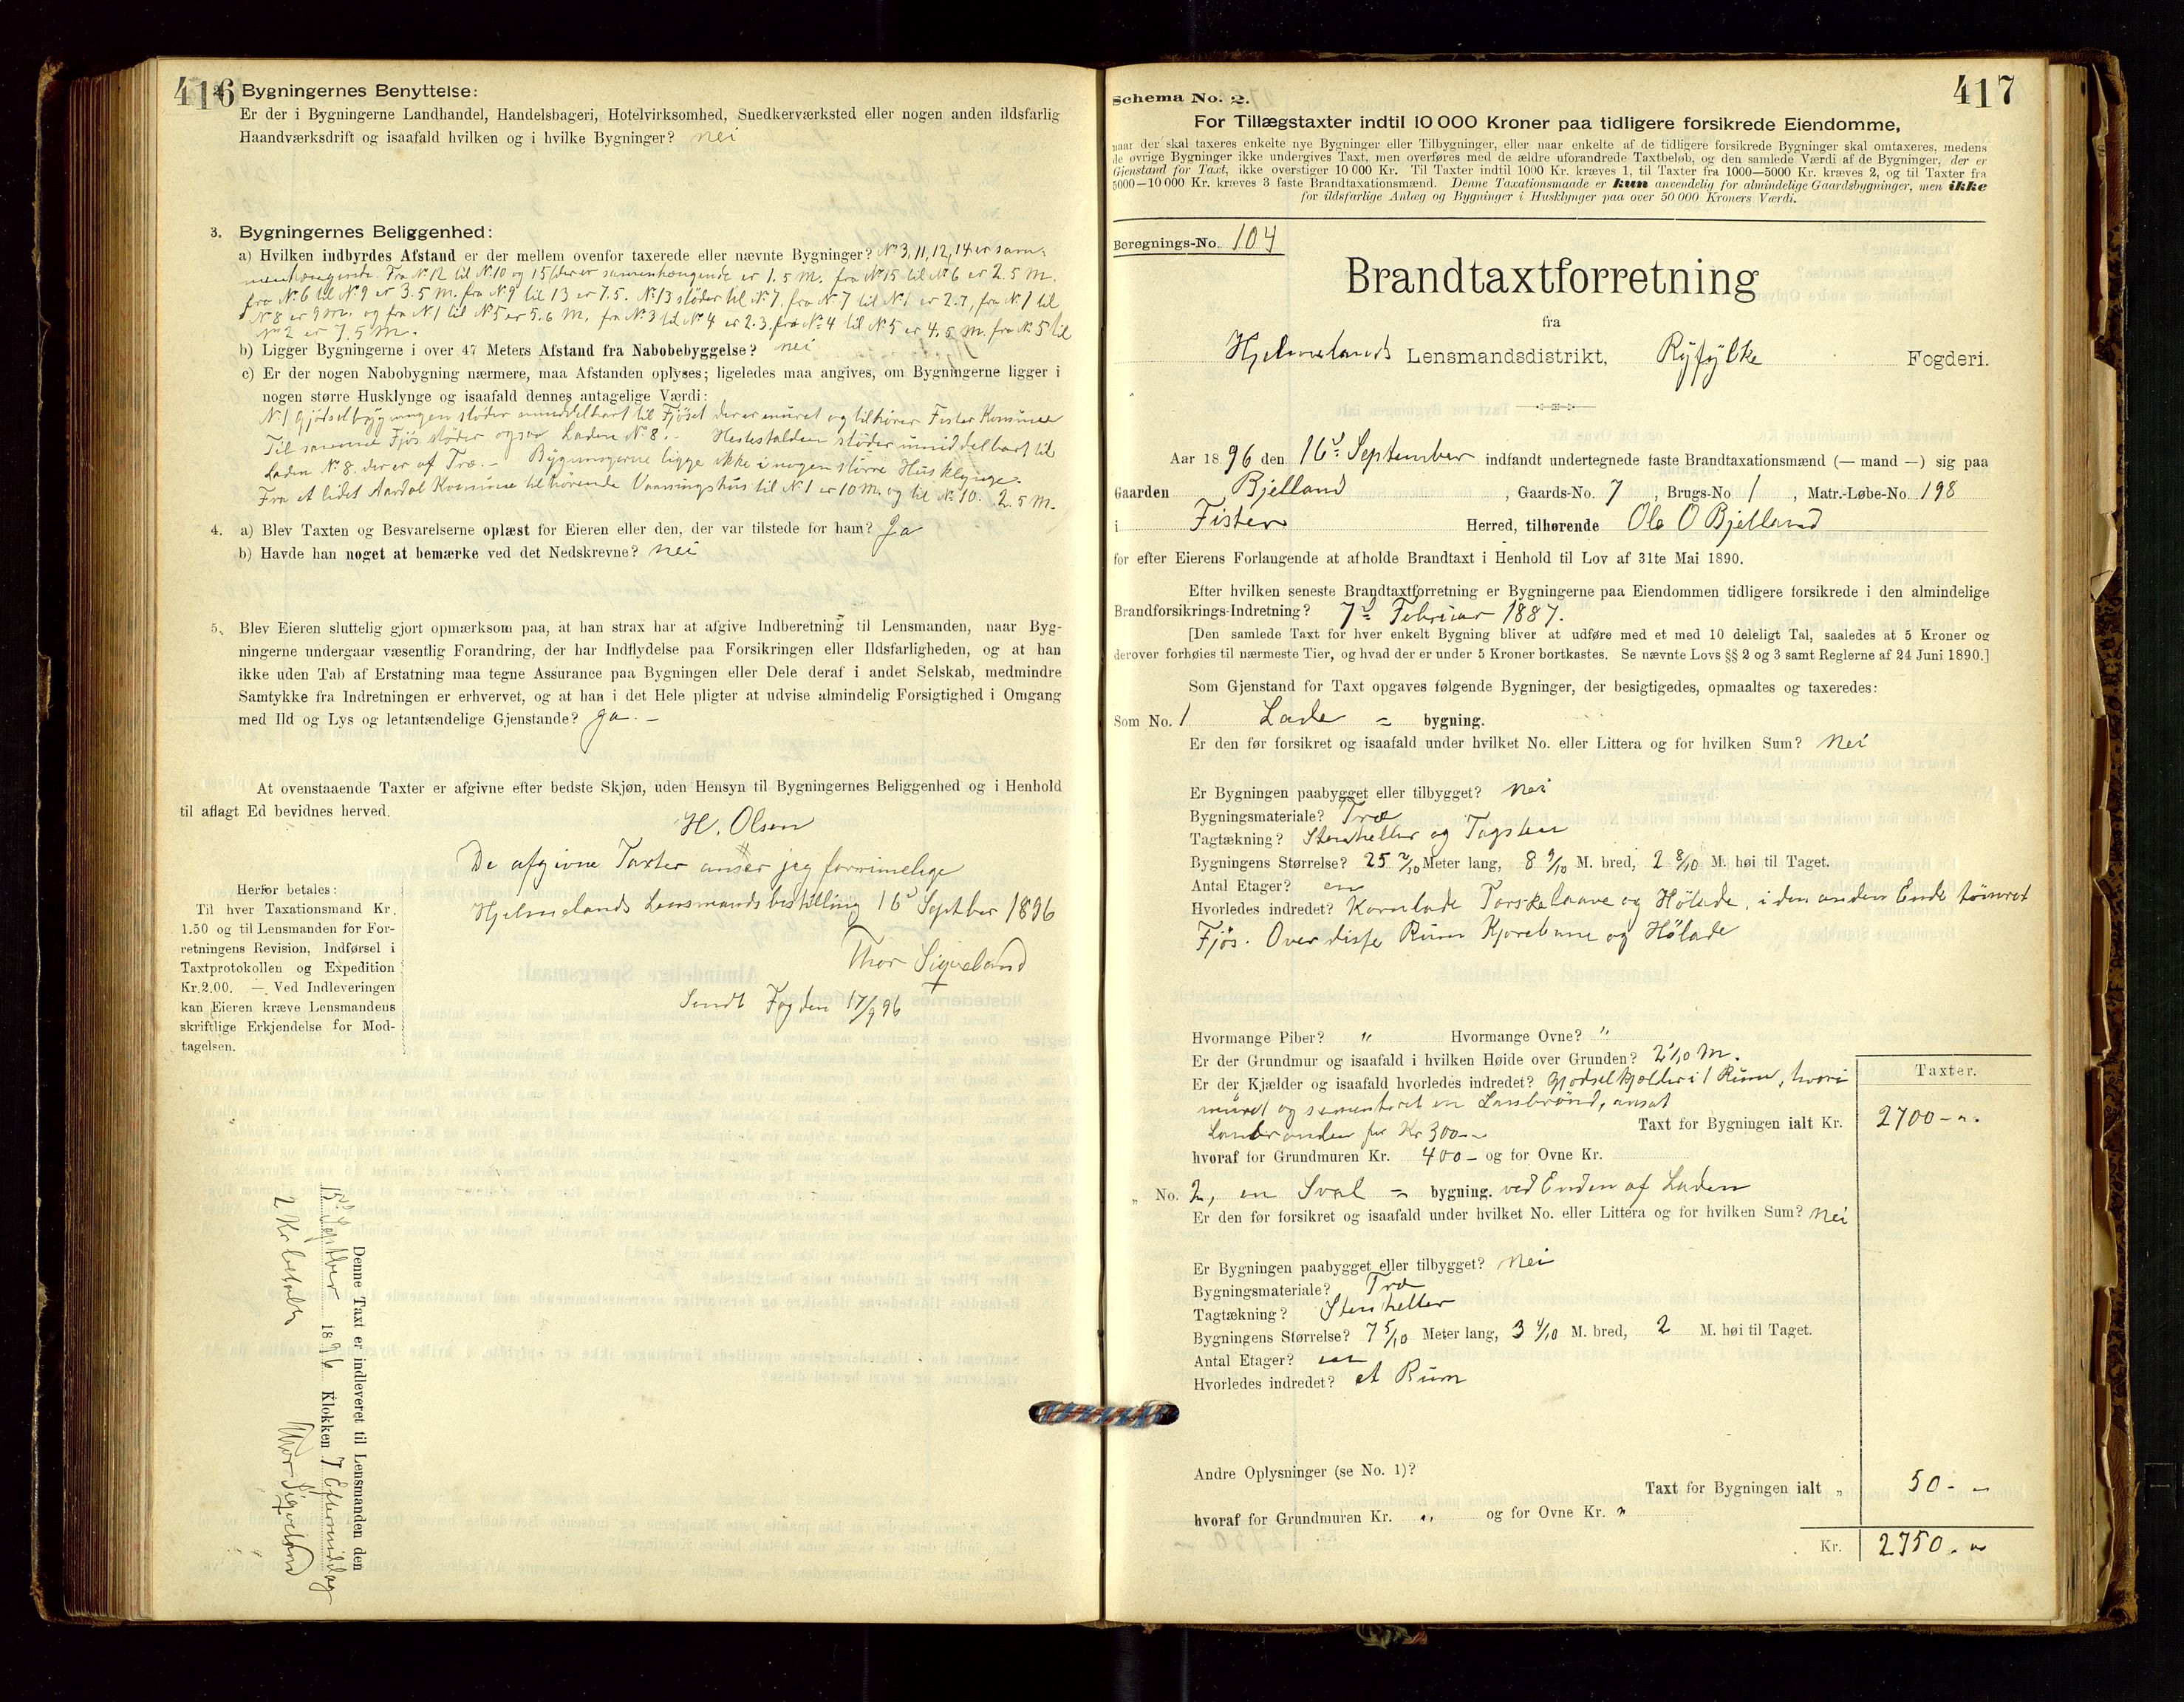 416
Bygningernes Benyttelse:
Er der i Bygningerne Landhandel, Handelsbageri, Hotelvirksomhed, Snedkerværksted eller nogen anden ildsfarlig
Haandværksdrift og isaafald hvilken og i hvilke Bygninger? nei
3. Bygningernes Beliggenhed:
a) Hvilken indbyrdes Afstand er der mellem ovenfor taxerede eller nævnte Bygninger? No 3, 11, 12, 14 er sam-
menhængende. Fra No 12 til No 10 og 15 (der er sammenhængende er 1.5 M. fra No 15 til No 6 er 2.5 M.
fra No 6 til No 9 er 3.5 M. fra No 9 til 13 er 7.5. No 13 støder til No 7, fra No 7 til No 1 er 2.7, fra No 1 til
No 8 er 9 M. og fra No 1 til No 5 er 5.6 M. fra No 3 til No 4 er 2.3, fra No 4 til No 5 er 4.5 M. fra No 5 til
No 2 er 7.5 M.
b) Ligger Bygningerne i over 47 Meters Afstand fra Nabobebyggelse? nei
c) Er der nogen Nabobygning nærmere, maa Afstanden oplyses; ligeledes maa angives, om Bygningerne ligger i
nogen større Husklynge og isaafald dennes antagelige Værdi:
No 1 Gjødselbygningen støder umiddelbart til Fjøset der er muret og tilhører Fister Kommune
Til samme Fjøs støder ogsaa Laden No 8. - Hestestalden støder umiddelbart til
Laden No 8. der er af Træ. - Bygningerne ligge ikke i nogen større Husklynge.
Fra et lidet Aardal Kommune tilhørende Vaaningshus til No 1 er 10 M. og til No 10. 2.5 M.
4. a) Blev Taxten og Besvarelserne oplæst for Eieren eller den, der var tilstede for ham? Ja
b) Havde han noget at bemærke ved det Nedskrevne? nei
5. Blev Eieren sluttelig gjort opmærksom paa, at han strax har at afgive Indberetning til Lensmanden, naar Byg-
ningerne undergaar væsentlig Forandring, der har Indflydelse paa Forsikringen eller Ildsfarligheden, og at han
ikke uden Tab af Erstatning maa tegne Assurance paa Bygningen eller Dele deraf i andet Selskab, medmindre
Samtykke fra Indretningen er erhvervet, og at han i det Hele pligter at udvise almindelig Forsigtighed i Omgang
med Ild og Lys og letantændelige Gjenstande? Ja. -
At ovenstaaende Taxter er afgivne efter bedste Skjøn, uden Hensyn til Bygningernes Beliggenhed og i Henhold
til aflagt Ed bevidnes herved.
H. Olsen
De afgivne Taxter anser jeg forrimelige
Hjelmelands Lensmandsbestilling 16d Septber 1896
Thor Sigveland
Sendt Fogden 17/9 96
Herfor betales:
Til hver Taxationsmand Kr.
1.50 og til Lensmanden for For-
retningens Revision, Indførsel i
Taxtprotokollen og Expedition
Kr. 2.00. — Ved Indleveringen
kan Eieren kræve Lensmandens
skriftlige Erkjendelse for Mod-
tagelsen.
Denne Taxt er indleveret til Lensmanden den
15d Septber 1896 Klokken 7 Eftermiddag
2 Kr betalt Thor Sigveland
417
Schema No. 2.
For Tillægstaxter indtil 10 000 Kroner paa tidligere forsikrede Eiendomme,
naar der skal taxeres enkelte nye Bygninger eller Tilbygninger, eller naar enkelte af de tidligere forsikrede Bygninger skal omtaxeres, medens
de øvrige Bygninger ikke undergives Taxt, men overføres med de ældre uforandrede Taxtbeløb, og den samlede Værdi af de Bygninger, der er
Gjenstand for Taxt, ikke overstiger 10 000 Kr. Til Taxter indtil 1000 Kr. kræves 1, til Taxter fra 1000—5000 Kr. kræves 2, og til Taxter fra
5000—10 000 Kr. kræves 3 faste Brandtaxationsmænd. Denne Taxationsmaade er kun anvendelig for almindelige Gaardsbygninger, men ikke
for ildsfarlige Anlæg og Bygninger i Husklynger paa over 50 000 Kroners Værdi.
Beregnings-No. 104
Brandtaxtforretning
fra
Hjelmelands Lensmandsdistrikt, Ryfylke Fogderi.
Aar 1896 den 16d September indfandt undertegnede faste Brandtaxationsmænd (— mand —) sig paa
Gaarden Bjelland, Gaards-No. 7, Brugs-No. 1, Matr.-Løbe-No. 198
i Fister Herred, tilhørende Ole O Bjelland
for efter Eierens Forlangende at afholde Brandtaxt i Henhold til Lov af 31te Mai 1890.
Efter hvilken seneste Brandtaxtforretning er Bygningerne paa Eiendommen tidligere forsikrede i den almindelige
Brandforsikrings-Indretning? 7d Februar 1887.
[Den samlede Taxt for hver enkelt Bygning bliver at udføre med et med 10 deleligt Tal, saaledes at 5 Kroner og
derover forhøies til nærmeste Tier, og hvad der er under 5 Kroner bortkastes. Se nævnte Lovs §§ 2 og 3 samt Reglerne af 24 Juni 1890.]
Som Gjenstand for Taxt opgaves følgende Bygninger, der besigtigedes, opmaaltes og taxeredes:
Som No. 1 Lade = bygning.
Er den før forsikret og isaafald under hvilket No. eller Littera og for hvilken Sum? Nei
Er Bygningen paabygget eller tilbygget? Nei
Bygningsmateriale? Træ
Tagtækning? Stenheller og Tagsten
Bygningens Størrelse? 25 7/10 Meter lang, 8 9/10 M. bred, 2 8/10 M. høi til Taget.
Antal Etager? en
Hvorledes indredet? Kornlade Tærskelaave og Hølade, i den anden Ende tømret
Fjøs. Over disse Rum Kjørebune og Hølade
Hvormange Piber? " Hvormange Ovne? "
Er der Grundmur og isaafald i hvilken Høide over Grunden? 2 1/10 M.
Er der Kjælder og isaafald hvorledes indredet? Gjødselkjelder i 1 Rum, hvori
muret og sementeret en Lanbrønd, ansat
Lanbrønden for Kr 300 -
Taxter.
Taxt for Bygningen ialt Kr. 2700 - ".
hvoraf for Grundmuren Kr. 400 - og for Ovne Kr.
" No. 2, en Sval = bygning. ved Enden af Laden
Er den før forsikret og isaafald under hvilket No. eller Littera og for hvilken Sum? Nei
Er Bygningen paabygget eller tilbygget? Nei
Bygningsmateriale? Træ
Tagtækning? Stenheller
Bygningens Størrelse? 7 5/10 Meter lang, 3 4/10 M. bred, 2 M. høi til Taget.
Antal Etager? en
Hvorledes indredet? et Rum
Andre Oplysninger (se No. 1)?
Taxt for Bygningen ialt " 50 - "
hvoraf for Grundmuren Kr. " og for Ovne Kr. "
Kr. 2750. "